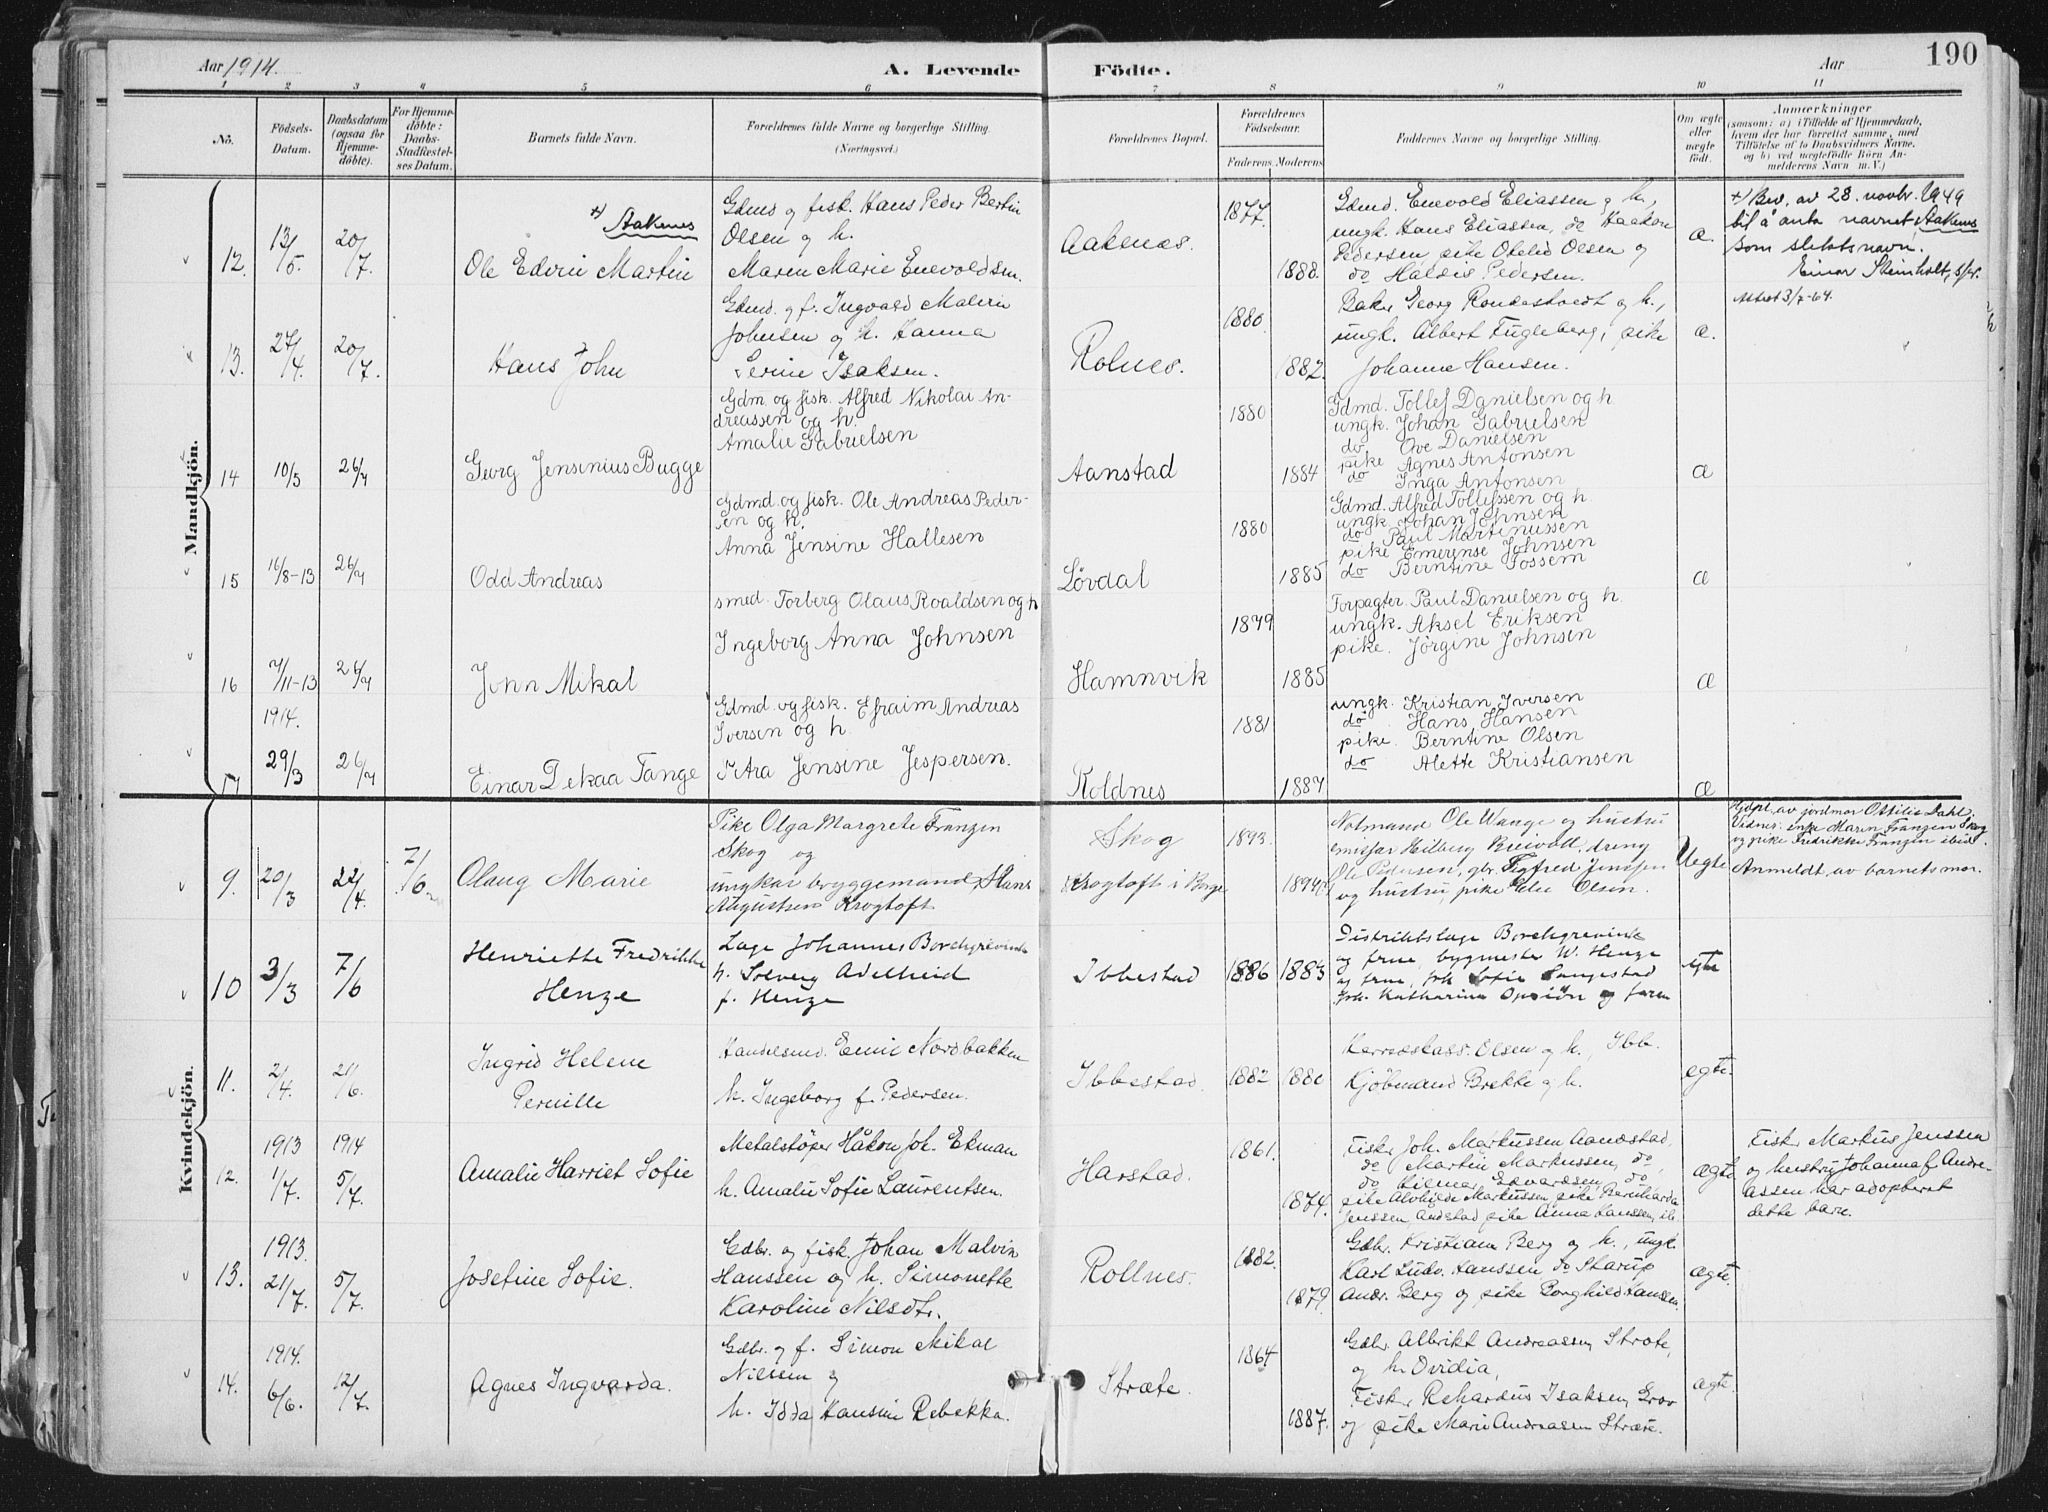 Aar 1914.
A. Levende Födte.
Aar
190
1 2 3 4 5 6 7 8 9 10 11
No.
Födsels-Datum.
Daabsdatum (ogsaa for Hjemmedöbte).
For Hjemmedöbte: Daabs-Stadfæstelses Datum.
Barnets fulde Navn.
Forældrenes fulde Navne og borgerlige Stilling.
(Næringsvei.)
Forældrenes Bopæl.
Forældrenes Födselsaar.
Faderens. Moderens.
Faddernes Navne og borgerlige Stilling.
Om ægte eller uægte födt.
Anmærkninger
(saasom: a) i Tilfælde af Hjemmedaab, hvem der har forrettet samme, med Tilföielse af to Daabsvidners Navne, og b) ved uægtefödte Börn Anmelderens Navn m. V.)
Mandkjön.
12. 13/5. 20/7.
+) Aakenes
Ole Edvin Martin
Gdmd og fisk. Hans Peder Bertin
Olsen og h.
Maren Marie Enevoldsen.
Aakenes.
1877. 1888.
Gdmd. Enevold Eliassen og h.,
ungk. Hans Eliassen, do Haakon
Pedersen, pike Otelie Olsen og
do Haldis Pedersen.
æ.
+) Bev. av 28. novbr. 1949
til å anta navnet Aakenes
som slektsnavn.
Einar Steinholt, s/pr.
Attest 3/7-64.
13. 27/4. 20/7.
Hans John
Gdmd. og f. Ingvald Malvin
Johnsen og h. Hanna
Serine Isaksen.
Rolnes.
1880. 1882.
Bak. Georg Rondestvedt og h.,
ungk. Albert Fugleberg, pike
Johanne Hansen.
æ.
14 10/5 26/7
Georg Jensinius Bugge
Gdm. og fisk. Alfred Nikolai An-
dreassen og h.
Amalie Gabrielsen
Aanstad
1880 1884
Gdmd. Tollef Danielsen og h
ungk. Johan Gabrielsen
do Ove Danielsen
pike Agnes Antonsen
do Inga Antonsen
æ
15 16/8-13 26/7
Odd Andreas
Gdmd og fisk. Ole Andreas Peder-
sen og h.
Anna Jensine Hallesen
Løvdal
1880 1885
Gdmd. Alfred Tollefssen og h
ungk. Johan Johnsen
do Paul Martinussen
pike Emerense Johnsen
do Berntine Fossem
æ
16 7/11-13 26/7
John Mikal
smed. Torberg Olaus Roaldsen og h
Ingeborg Anna Johnsen
Hamnvik
1879 1885
Forpagter Paul Danielsen og h.
ungk. Aksel Eriksen
pike. Jørgine Johnsen
æ
17 1914. 29/3 26/7
Einar Dekaa Tange
Gdmd og fisk. Efraim Andreas
Iversen og h.
Petra Jensine Jespersen.
Roldnes
1881 1887
ungk. Kristian Iversen
do Hans Hansen
pike. Berntine Olsen
do Alette Kristiansen
æ
Kvindekjön.
9. 20/3 22/4. 7/6
Olaug Marie
Pike Olga Margrete Franzen
Skog og
ungkar bryggemand Hans
Augustsen Krogtoft
Skog
Krogtoft i Borge
1893. 1894
Notmand Ole Wange og hustru
emissær Hilberg Kveivoll, dreng
Ole Pedersen, gbr. Sigfred Jenssen
og hustru, pike Olsen.
Uegte
Hjdpt. av jordmor Ottilie Dahl.
Vidner: enke Maren Franzen Skog
og pike Fredrikke Franzen ibid.
Anmeldt av barnets mor.
10 3/3 7/6
Henriette Fredrikke
Henze
Læge Johannes Borchgrevink
h. Solveig Adelheid
f. Henze
Ibbestad
1886 1883
Distriktslæge Borchgrevink
og frue, bygmester W. Henze
og frue, frk Sofie Langestad
frk. Katharina og faren
egte
11. 2/4. 21/6.
Ingrid Helene
Pernille
Handelsmd. Emil Nordbakken
h. Ingeborg f. Pedersen.
Ibbestad.
1882 1880
Herredskass. Olsen og h., Ibb.
Kjøbmand Brekke og h.
egte.
12. 1913 1/7. 1914 5/7.
Amalie Harriet Sofie
Metalstøper Håkon Joh. Ekman
h. Amalie Sofie Laurentsen.
Harstad.
1861. 1874.
Fisk. Joh. Markussen Aandstad,
do Martin Markussen, do,
do Hilmar Edvardsen do,
pike Alvhilde Markussen, pike Bernharda
Jenssen Andstad pike Anna Hanssen, ib.
ægte
Fisk. Markus Jenssen
og hustru Johanna f. Andre-
assen har adopteret
dette barn.
13. 1913 21/7. 5/7.
Josefine Sofie.
Gdbr. og fisk. Johan Malvin
Hanssen og h. Simonette
Karoline Nilsdtr.
Rollnes.
1882. 1879.
Gdbr. Kristian Berg og h., ungk.
Karl Ludv. Hanssen do Starup
Andr. Berg og pike Borghild Hanssen
ægte.
14. 1914. 6/6. 12/7.
Agnes Ingvarda.
Gdbr. og f. Simon Mikal
Nilsen og
h. Idda Hansine Rebekka.
Stræte.
1864 1887.
Gdbr. Albrikt Andreassen, Stræte,
og h. Ovidia,
Fisk. Rikardus Isaksen, Grov
og pike Marie Andreasen Stræte.
ægte.